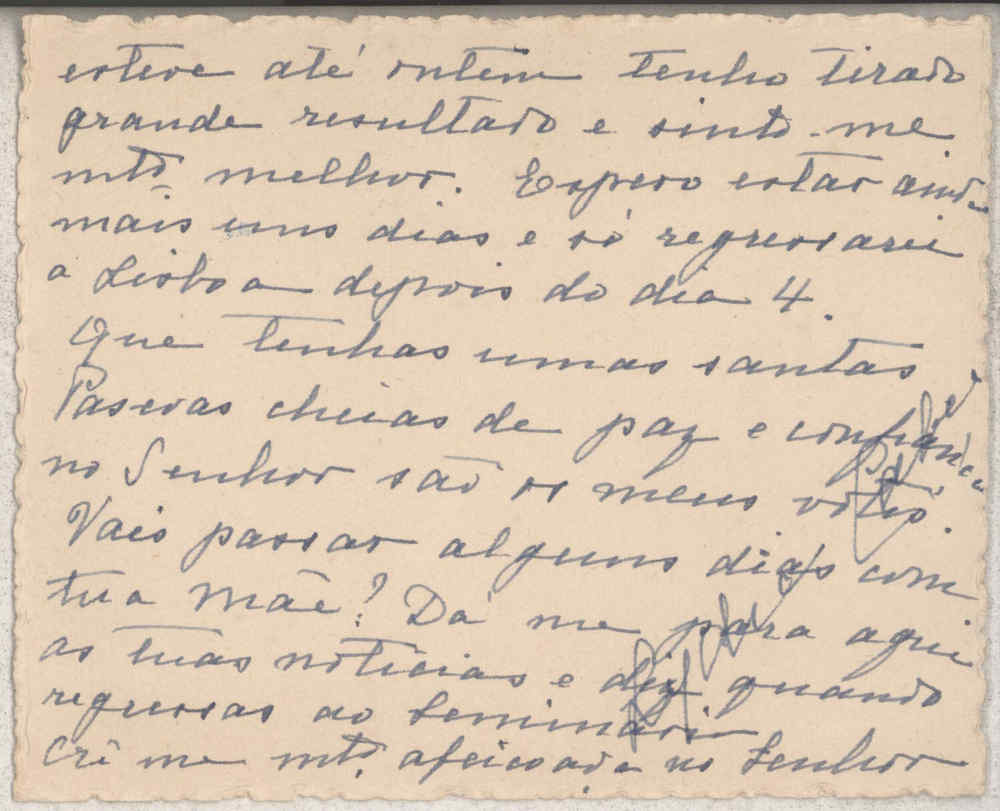 esteve até ontem tenho tirado
grande resultado e sinto-me
mtº melhor. Espero estar ainda
mais uns dias e só regressarei
a Lisboa depois do dia 4.
Que tenhas umas santas
Pascoas cheias de paz e confiança
no Senhor são os meus votos.
Vais passar alguns dias com
tua Mãe? Dá me para aqui
as tuas noticias e diz quando
regressas ao Seminário
Crê me mtº. afeiçoada no Senhor